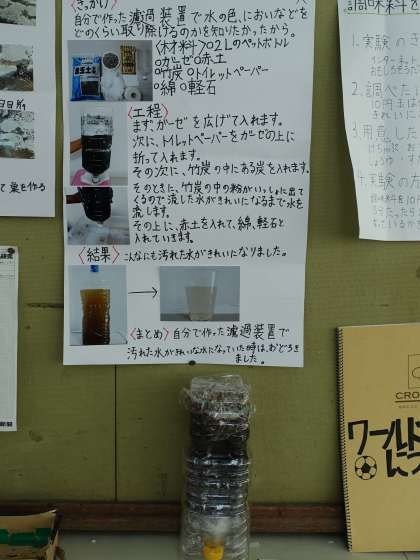 〈きっかけ〉
自分で作った濾過装置で水の色、においなどを
どのくらい取り除けるのかを知りたかったから。
〈材料〉○2Lのペットボトル
○ガーゼ○赤土
○竹炭○トイレットペーパー
○綿○軽石
〈工程〉
まず、ガーゼを広げて入れます。
次に、トイレットペーパーをガーゼの上に
折って入れます。
その次に、竹炭の中にある炭を入れます。
そのときに、竹炭の中の粉がいっしょに出て
くるので流した水がきれいになるまで水を
流します。
その上に、赤土を入れて、綿、軽石と
入れていきます。
〈結果〉こんなにも汚れた水がきれいになりました。
〈まとめ〉自分で作った濾過装置で
汚れた水がきれいな水になっていた時は、おどろき
ました。
て巣を作る
調味料を
1.実験のき
インターネット
おもしろそう
2.調べた
10円玉は
きれいに
3.用意した
4.実験の方
調味料を10円
CRO
ワールド